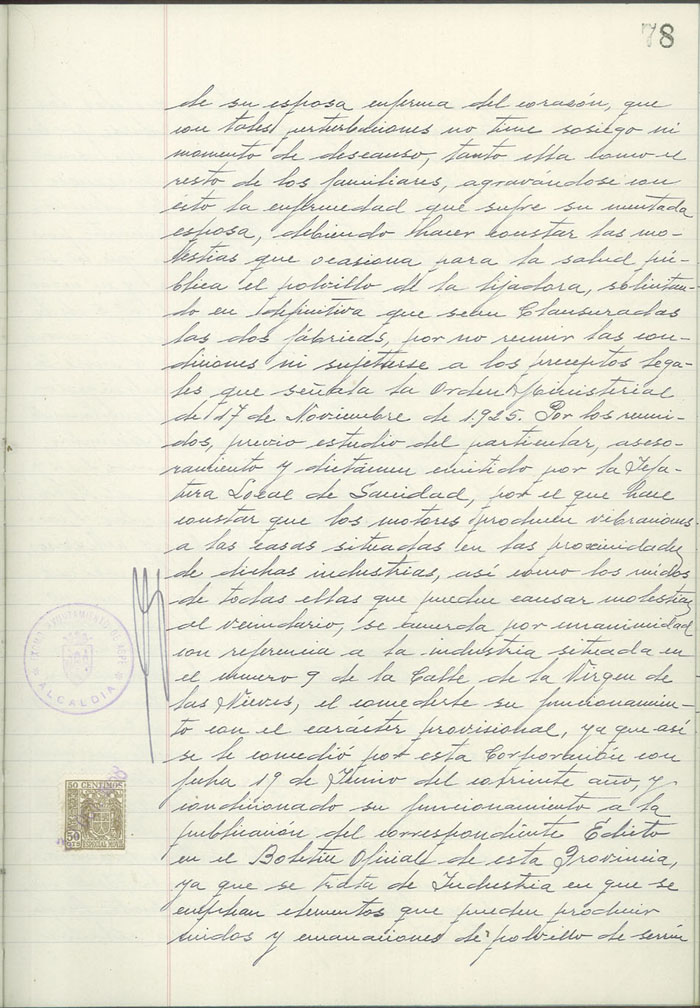 78
de su esposa enferma del corazón, que
con tales perturbaciones no tiene sosiego ni
momento de descanso, tanto ella como el
resto de los familiares, agravándose con
ésto la enfermedad que sufre su mentada
esposa, debiendo hacer constar las mo-
lestias que ocasiona para la salud pú-
blica el polvillo de la lijadora, solicitan-
do en definitiva que sean Clausuradas
las dos fábricas, por no reunir las con-
diciones ni sujetarse a los preceptos lega-
les que señala la Orden Ministerial
de 17 de Noviembre de 1.925. Por los reuni-
dos, previo estudio del particular, aseso-
ramiento y dictámen emitido por la Jefa-
tura Local de Sanidad, por el que hace
constar que los motores producen vibraciones
a las casas situadas en las proximidades
de dichas industrias, así como los ruidos
de todas ellas que pueden causar molestias
al vecindario, se acuerda por unanimidad
con referencia a la industria situada en
el número 9 de la Calle de la Virgen de
las Nieves, el concederle su funcionamien-
to con el carácter provisional, ya que así
se le concedió por esta Corporación con
fecha 19 de Junio del corriente año, y
condicionado su funcionamiento a la
publicación del correspondiente Edicto
en el Boletín Oficial de esta Provincia,
ya que se trata de Industria en que se
emplean elementos que pueden producir
ruidos y emanaciones de polvillo de serrín
AYUNTAMIENTO DE
ALCALDIA
50 CENTIMOS
50